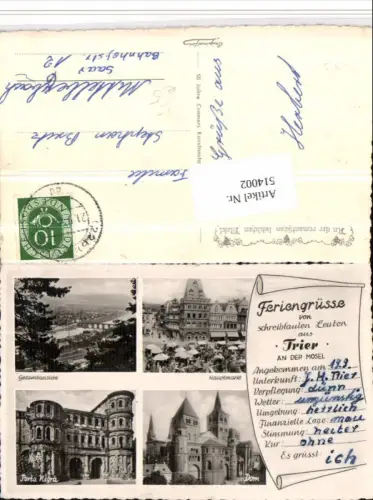 Grüße aus
Herbert
Familie
Stephan
Mittelbexbach
Saar 12
Bahnhofstr.
10
Artikel Nr.
514002
An der romantischen lieblichen Mosel
Gesamtansicht
Hauptmarkt
Porta Nigra
Dom
Feriengrüsse
von
schreibfaulen Leuten
aus
· Trier ·
AN DER MOSEL
Angekommen am 12.9.
Unterkunft J. H. Trier
Verpflegung dünn
Wetter
Umgebung herrlich
Finanzielle Lage mau
Stimmung heiter
Kur ohne
Es grüsst ich